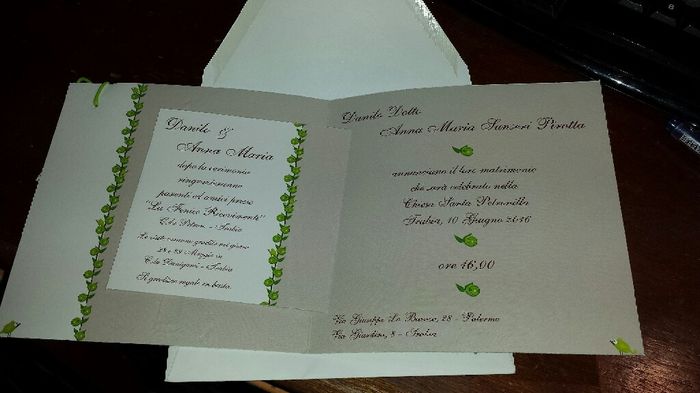 Danilo &
Anna Maria
dopo la cerimonia
ringrazieranno
parenti & amici presso
"La Fenice Ricevimenti"
C.da Pistavecchia - Trabia
Le visite saranno gradite nei giorni
28 e 29 Maggio in
C.da - Trabia
Si gradisce regalo in busta.
Danilo Dotto
Anna Maria Sunseri Pirotta
annunciano il loro matrimonio
che sarà celebrato nella
Chiesa Santa Petronilla
Trabia, 10 Giugno 2016
ore 16,00
Via Giuseppe Lo Bianco, 28 - Palermo
Via Giardini, 8 - Trabia